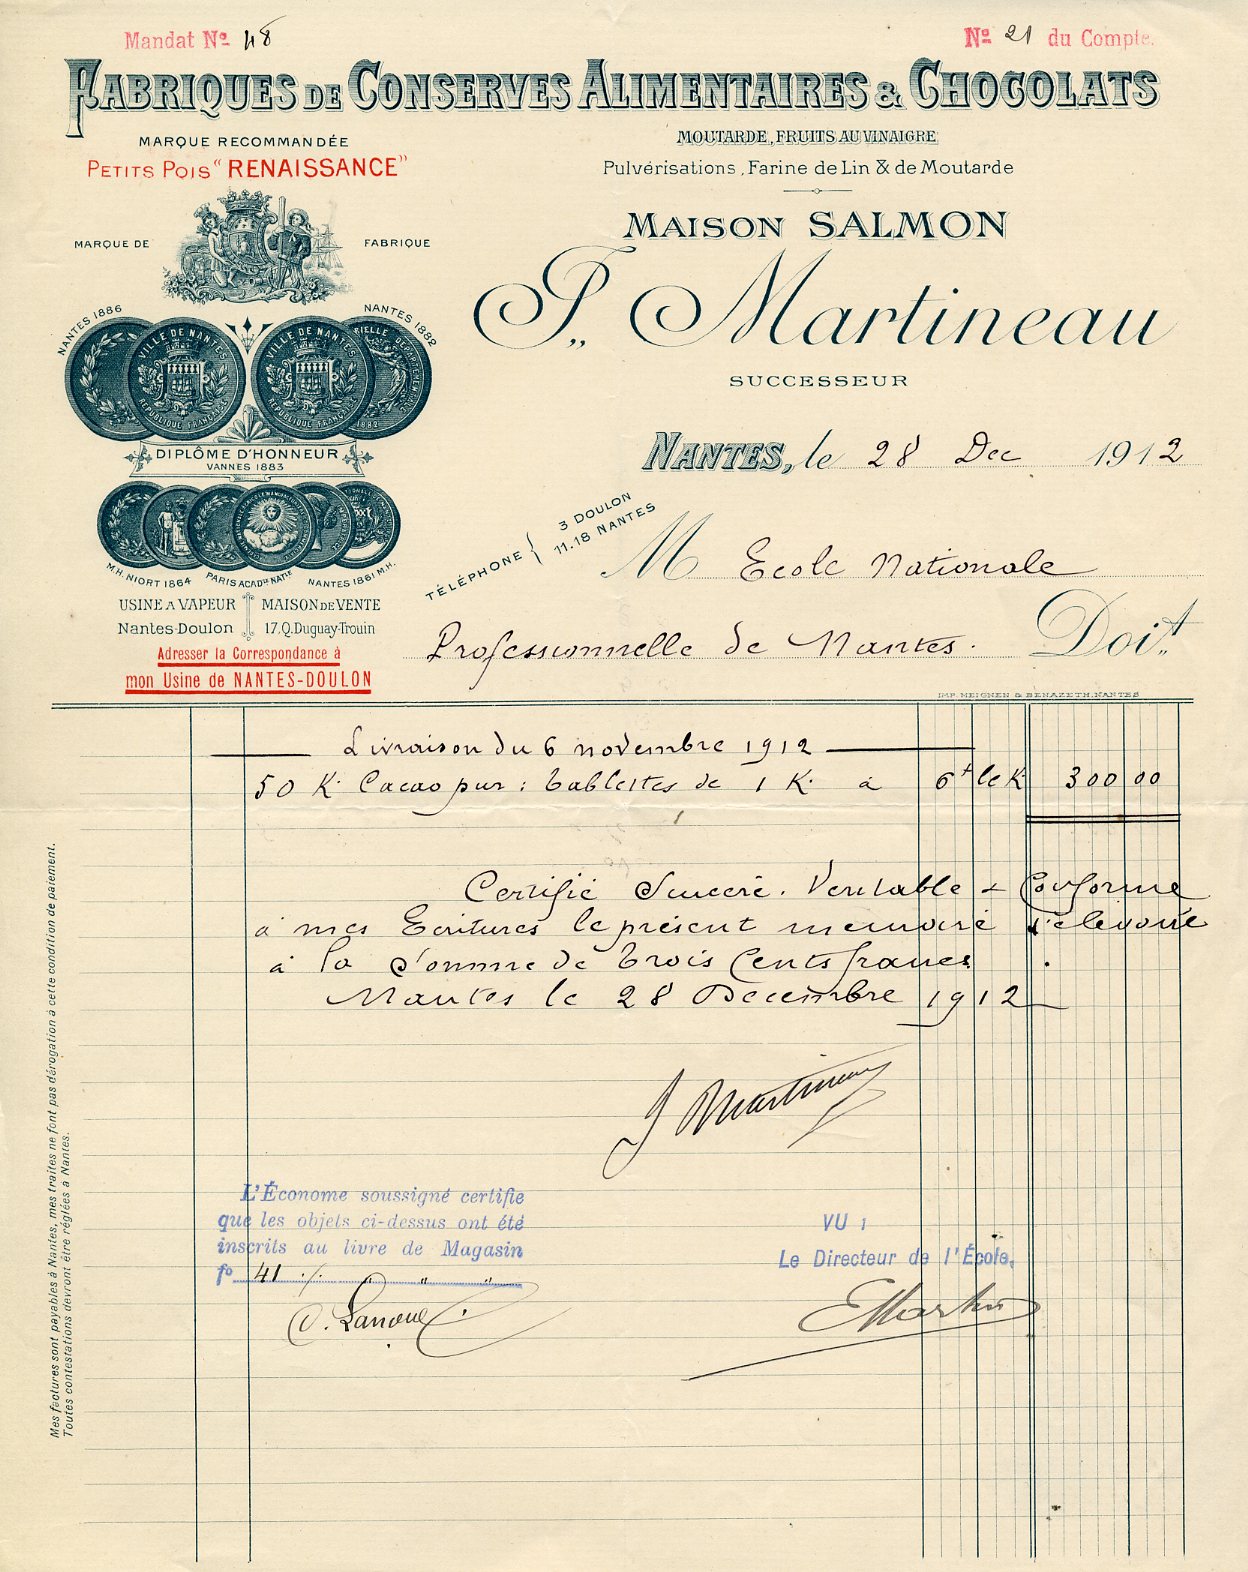 Mandat No 48
No 21 du Compte.
FABRIQUES DE CONSERVES ALIMENTAIRES & CHOCOLATS
MARQUE RECOMMANDÉE
PETITS POIS "RENAISSANCE"
MOUTARDE, FRUITS AU VINAIGRE
Pulvérisations, Farine de Lin & de Moutarde
MAISON SALMON
MARQUE DE FABRIQUE
Martineau
SUCCESSEUR
NANTES 1886
NANTES 1882
VILLE DE NANTES
RÉPUBLIQUE FRANÇAISE
VILLE DE NANTES
RÉPUBLIQUE FRANÇAISE
1882
DIPLÔME D'HONNEUR
VANNES 1883
NANTES, le 28 Dec 1912
TÉLÉPHONE { 3 DOULON
11-18 NANTES
M Ecole Nationale
Professionnelle de Nantes. Doit
M.H. NIORT 1864
PARIS ACAD.ie NAT.le
NANTES 1861 M.H.
USINE A VAPEUR
Nantes-Doulon
MAISON DE VENTE
17, Q. Duguay-Trouin
Adresser la Correspondance à
mon Usine de NANTES-DOULON
IMP. MEIGNEN & BENAZETH, NANTES
Livraison du 6 novembre 1912
50 K. Cacao pur : tablettes de 1 K. à 6f le K 300 00
Certifié Sincère. Veritable & Conforme
à mes Ecritures le présent memoire s'elevant
à la Somme de trois Cents francs.
Nantes le 28 Decembre 1912
J Martineau
L'Économe soussigné certifie
que les objets ci-dessus ont été
inscrits au livre de Magasin
fo 41
VU :
Le Directeur de l'École,
Mes factures sont payables à Nantes, mes traites ne font pas dérogation à cette condition de paiement.
Toutes contestations devront être réglées à Nantes.